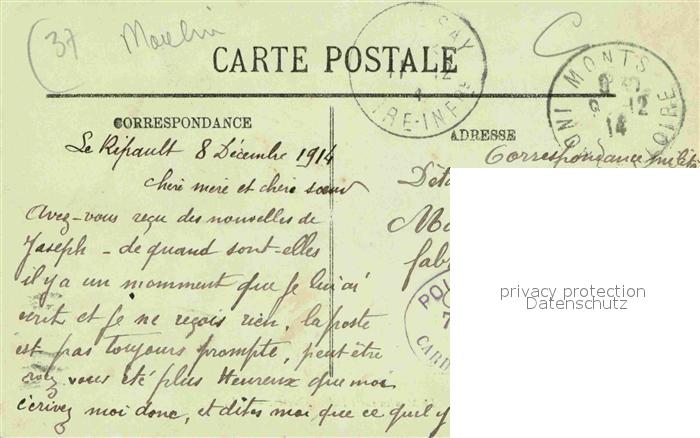 37
Moulin
CARTE POSTALE
SAY
12
4
IRE-INF
MONTS
12
14
LOIRE
CORRESPONDANCE
ADRESSE
Le Ripault 8 Décembre 1914
Correspondance milit
chère mère et chère sœur
Déta
Avez-vous reçu des nouvelles de
Joseph - de quand sont-elles
fab
il y a un momment que je lui ai
écrit et je ne reçois rien, la poste
POU
est pas toujours prompte, peut être
CARD
avez vous été plus Heureux que moi
écrivez moi donc, et dites moi que ce qu'il y
privacy protection
Datenschutz